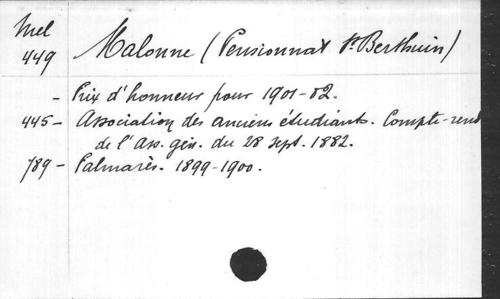 Mel
449 Malonne (Pensionnat St. Berthuin)
- Prix d'honneur pour 1901-02.
445 - Association des anciens étudiants. Compte-rend
de l'Ass. gén. du 28 sept. 1882.
789 - Palmarès. 1899-1900.